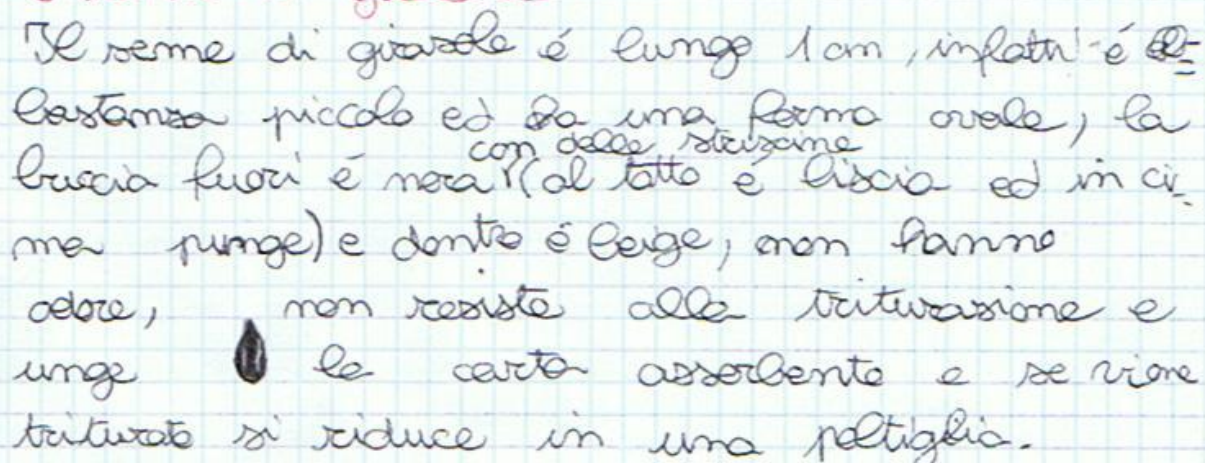 Il seme di girasole é lungo 1 cm, infatti é ab-
bastanza piccolo ed ha una forma ovale, la
con delle striscine
buccia fuori é nera (al tatto é liscia ed in ci-
ma punge) e dentro é beige, non hanno
odore, non resiste alla triturazione e
unge la carta assorbente e se viene
triturato si riduce in una poltiglia.